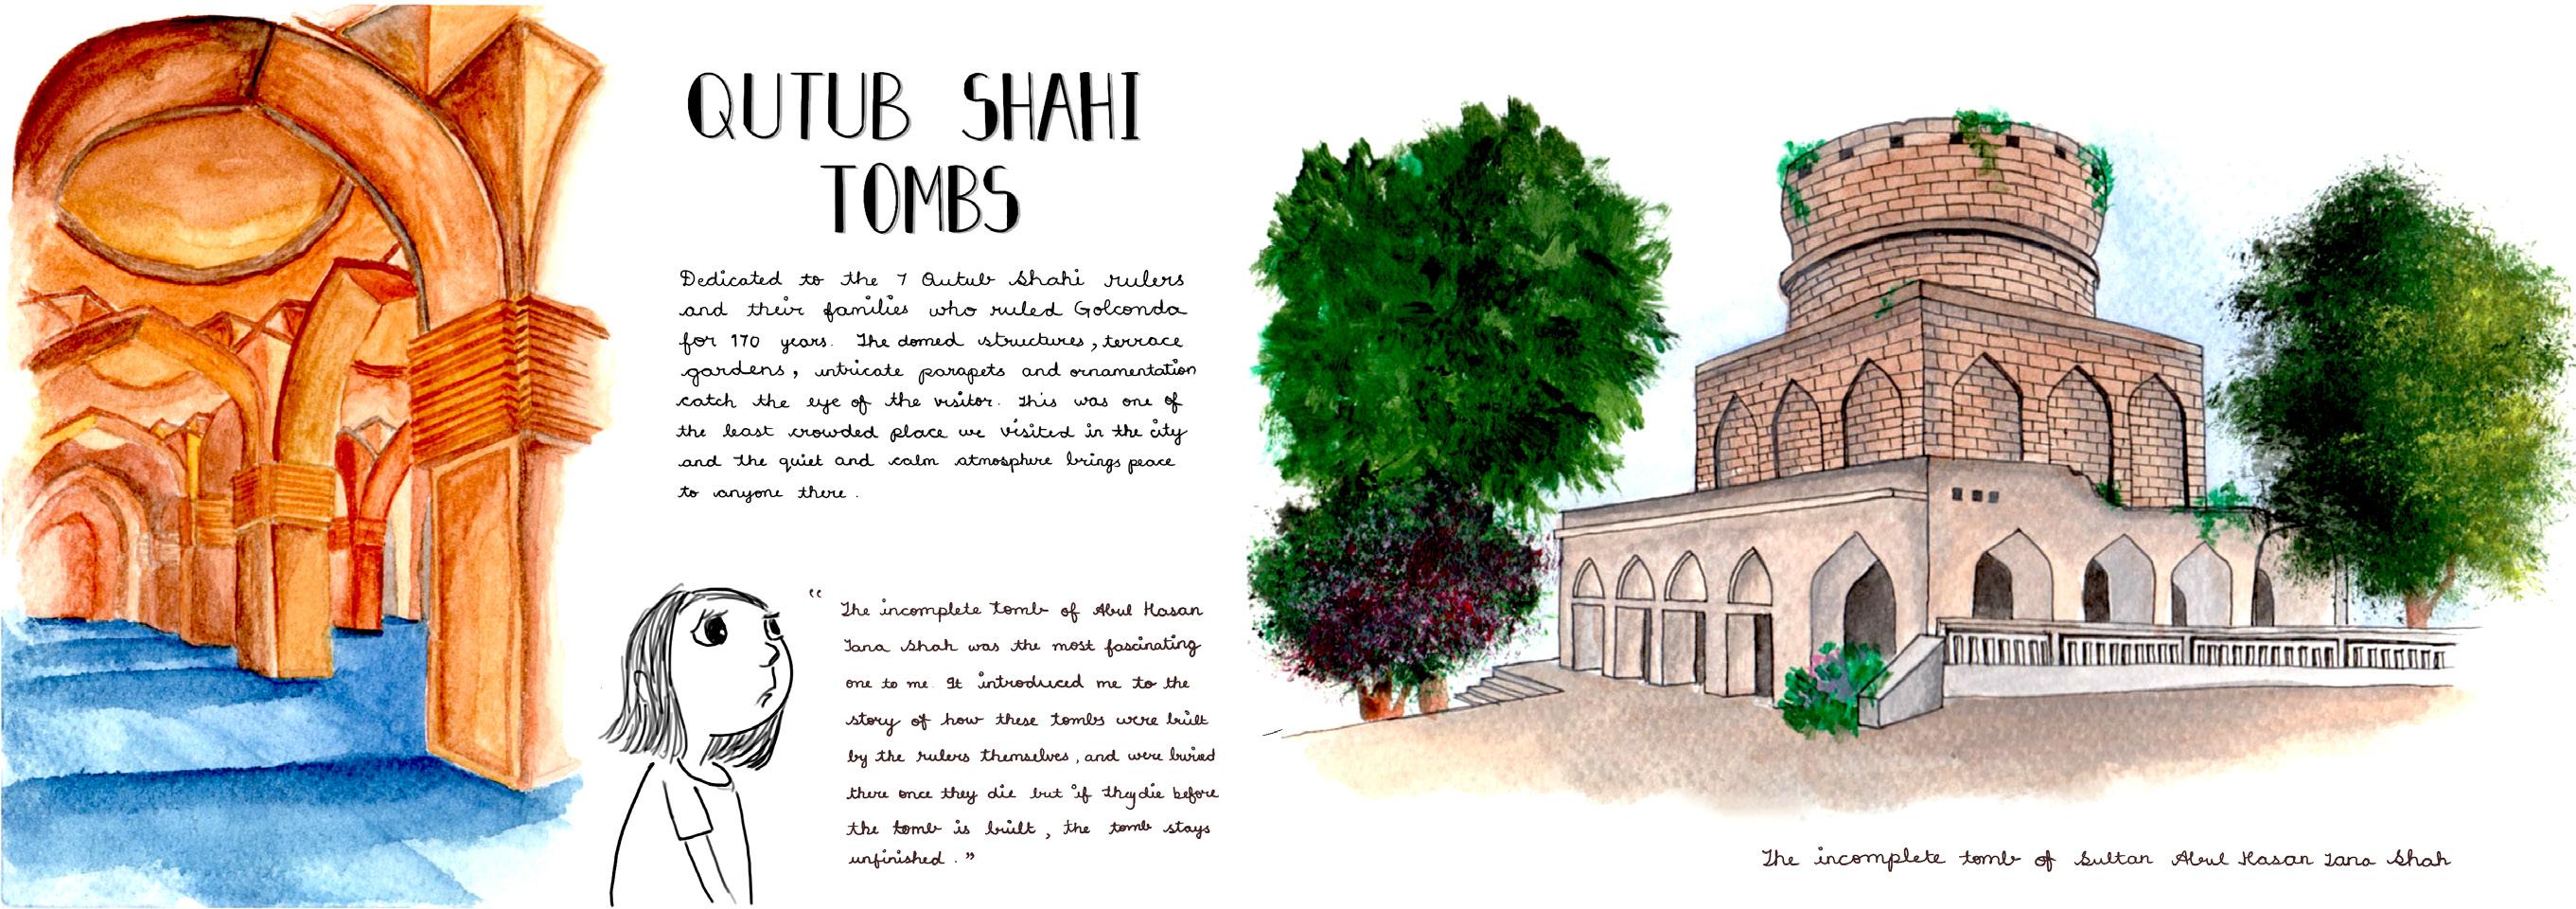 QUTUB SHAHI
TOMBS
Dedicated to the 7 Qutub Shahi rulers
and their families who ruled Golconda
for 170 years. The domed structures, terrace
gardens, intricate parapets and ornamentation
catch the eye of the visitor. This was one of
the least crowded place we visited in the city
and the quiet and calm atmosphure brings peace
to anyone there.
“ The incomplete tomb of Abul Hasan
Tana Shah was the most fascinating
one to me. It introduced me to the
story of how these tombs were built
by the rulers themselves, and were buried
there once they die but if they die before
the tomb is built, the tomb stays
unfinished.”
The incomplete tomb of Sultan Abul Hasan Tana Shah